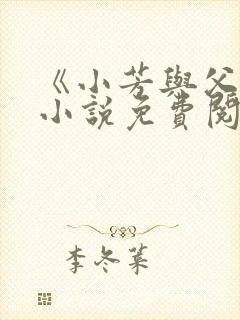 《小芳與父
小說免費閱
李冬葉